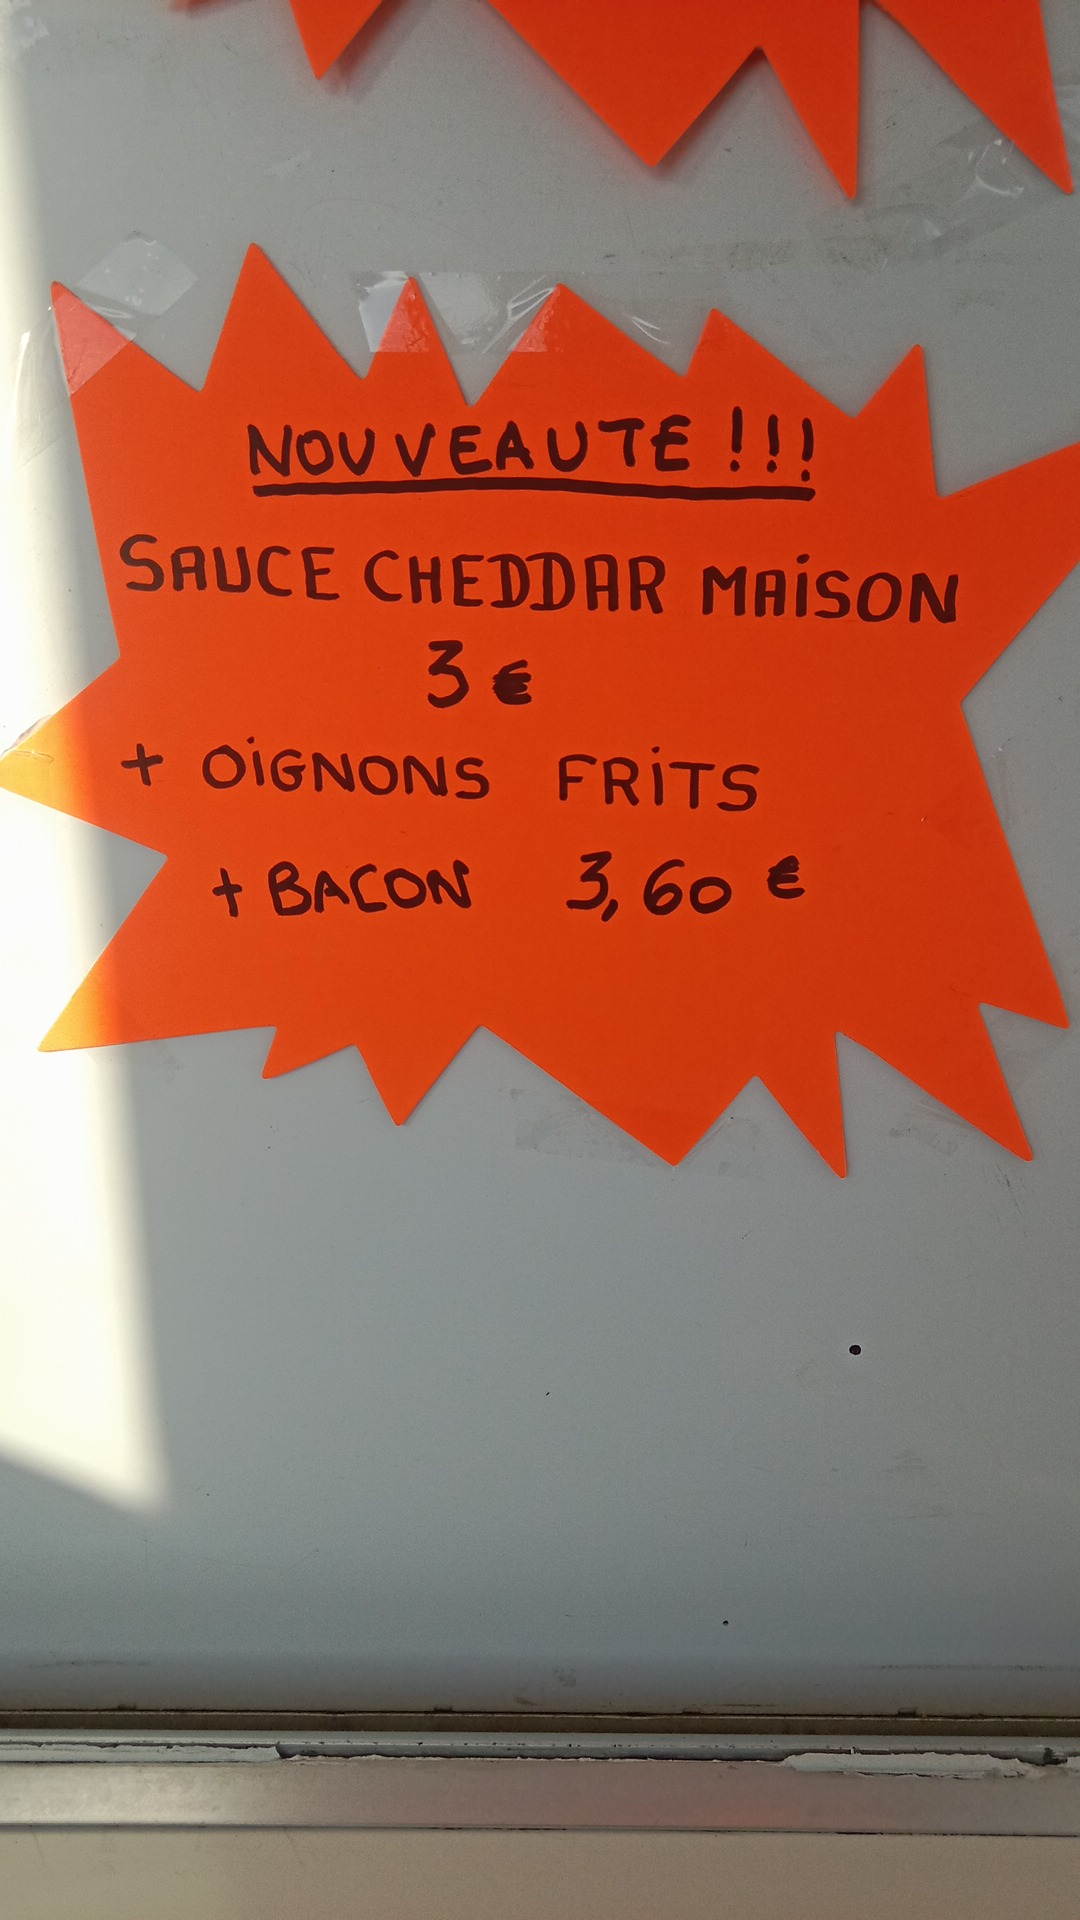 NOUVEAUTE !!!
SAUCE CHEDDAR MAiSON
3 €
+ OiGNONS FRiTS
+ BACON 3,60 €